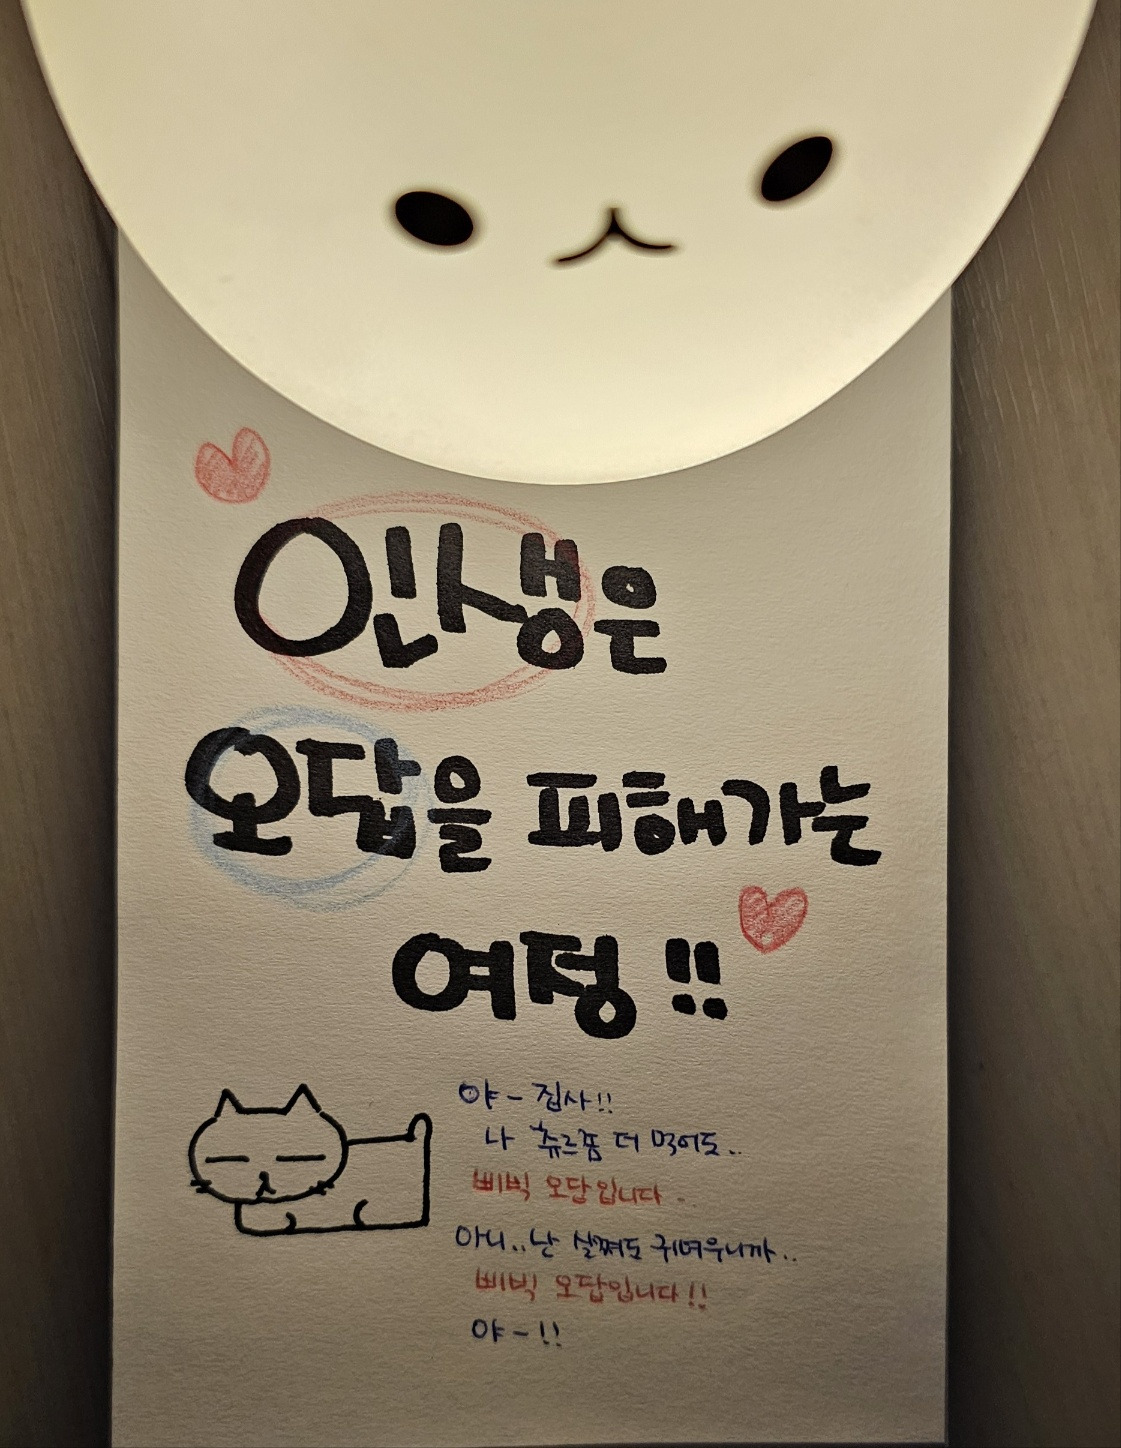 인생은
오답을 피해가는
여정!!
야- 집사!!
나 츄르좀 더 먹어도..
삐빅 오답입니다..
아니.. 난 살쪄도 귀여우니까..
삐빅 오답입니다!!
야-!!